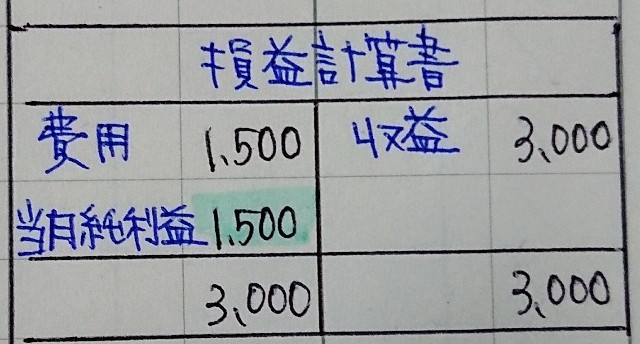 損益計算書
費用 1,500 収益 3,000
当月純利益 1,500
3,000 3,000